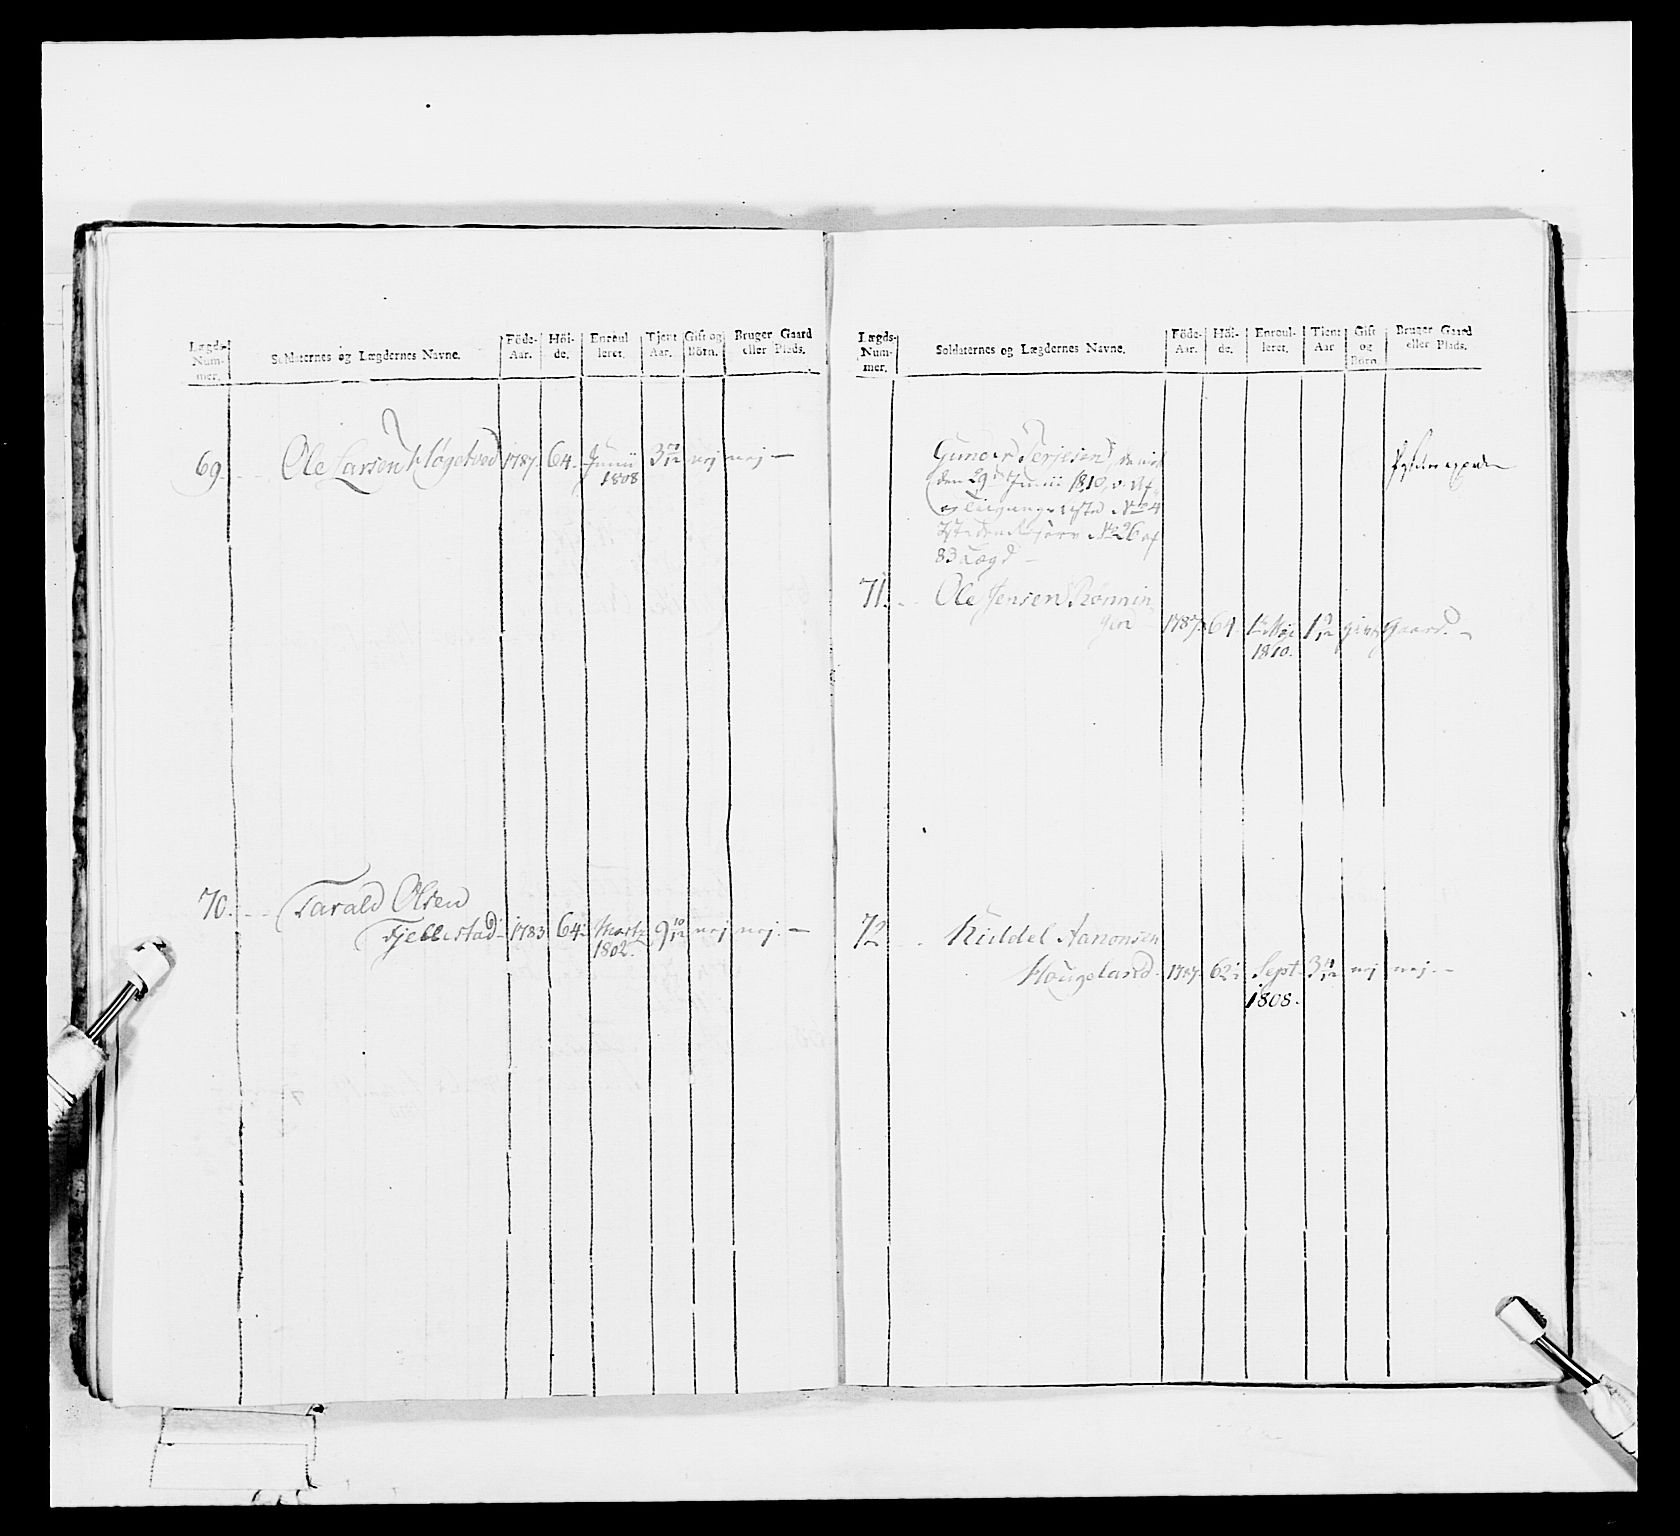 Lægds-
Num-
mer.
Soldaternes og Lægdernes Navne.
Föde-
Aar.
Höi-
de.
Enroul
leret.
Tjent
Aar.
Gift og
Börn.
Bruger Gaard
eller Plads.
69. Ole Larsen Høgetved 1787. 64. Junii 3 10/12 nej nej —
1808
70. Tarald Olsen
Fjellestad 1783 64. Martz 9 10/12 nej nej. —
1802.
Lægds-
Num-
mer.
Soldaternes og Lægdernes Navne.
Föde-
Aar.
Höi-
de.
Enroul-
leret.
Tjent
Aar
Gift
og
Börn.
Bruger Gaard
eller Plads.
Gunder Terjesen
den 29de Junii 1810
No 24
No 26 af
83 Lægd —
71. Ole Jensen Rønnin
gen 1787. 64. 1te Maj 1 gift Gaard. —
1810.
72 Kiddel Aanonsen
Hougeland 1787 62 Sept. 3 nej nej. —
1808.